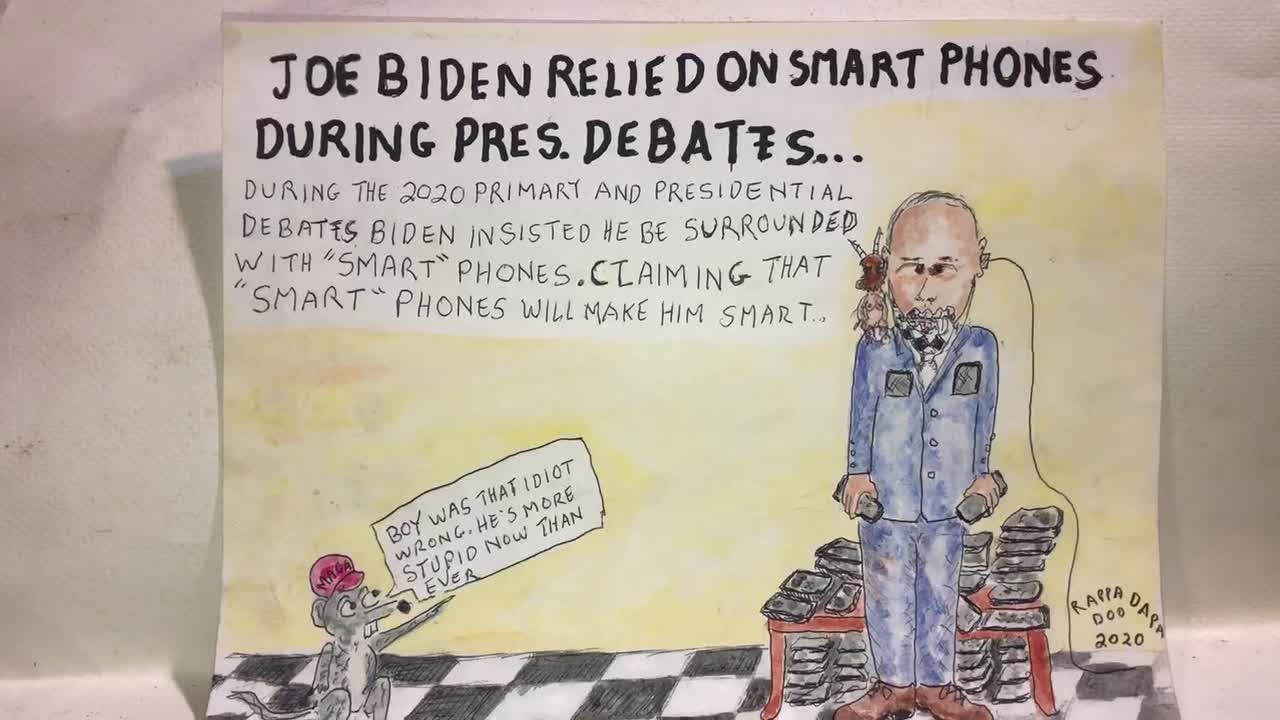 JOE BIDEN RELIED ON SMART PHONES
DURING PRES. DEBATES...
DURING THE 2020 PRIMARY AND PRESIDENTIAL
DEBATES BIDEN INSISTED HE BE SURROUNDED
WITH "SMART" PHONES. CLAIMING THAT
"SMART" PHONES WILL MAKE HIM SMART..
BOY WAS THAT IDIOT
WRONG. HE'S MORE
STUPID NOW THAN
EVER
MAGA
RAPPA DAPA
DOO
2020